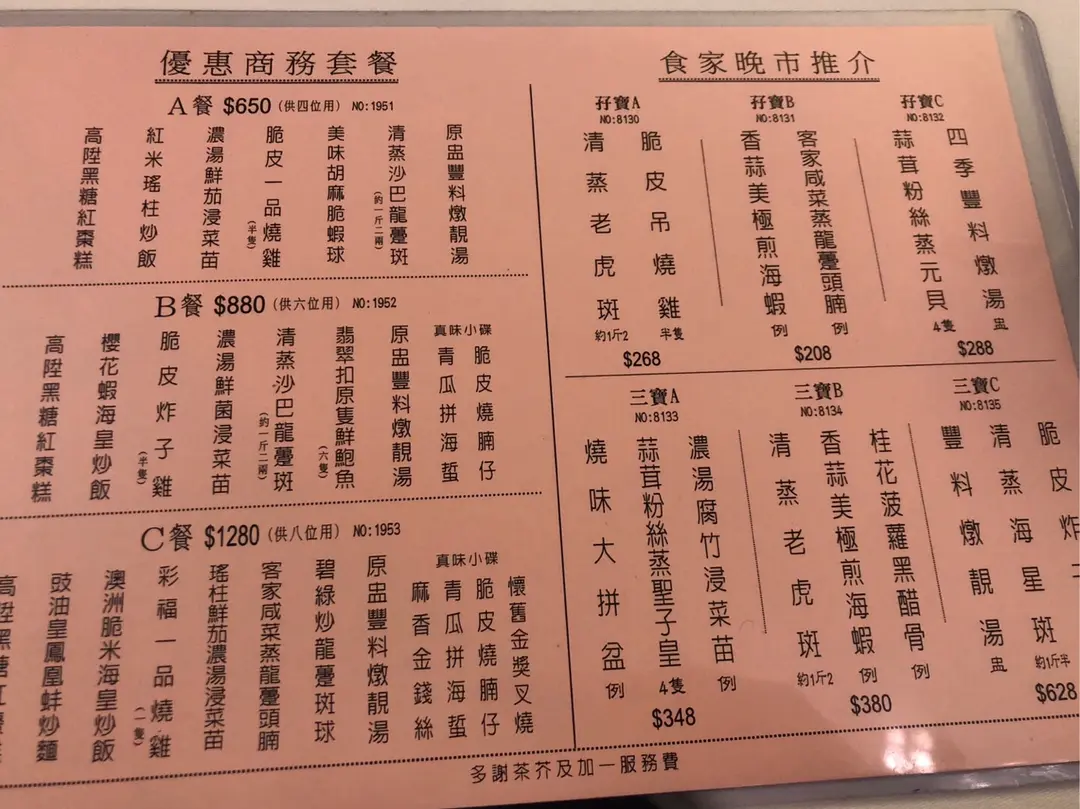 優惠商務套餐
A餐 $650 (供四位用) NO:1951
原盅豐料燉靚湯
清蒸沙巴龍躉斑 (約一斤二兩)
美味胡麻脆蝦球
脆皮一品燒雞 (半隻)
濃湯鮮茄浸菜苗
紅米瑤柱炒飯
高陞黑糖紅棗糕
B餐 $880 (供六位用) NO:1952
真味小碟
脆皮燒腩仔
青瓜拼海蜇
原盅豐料燉靚湯
翡翠扣原隻鮮鮑魚 (六隻)
清蒸沙巴龍躉斑 (約一斤二兩)
濃湯鮮菌浸菜苗
脆皮炸子雞 (半隻)
櫻花蝦海皇炒飯
高陞黑糖紅棗糕
C餐 $1280 (供八位用) NO:1953
真味小碟
懷舊金獎叉燒
脆皮燒腩仔
青瓜拼海蜇
麻香金錢絲
原盅豐料燉靚湯
碧綠炒龍躉斑球
客家咸菜蒸龍躉頭腩
瑤柱鮮茄濃湯浸菜苗
彩福一品燒雞 (一隻)
澳洲脆米海皇炒飯
豉油皇鳳凰蚌炒麵
高陞黑糖紅
食家晚市推介
孖寶A
NO:8130
脆皮吊燒雞 半隻
清蒸老虎斑 約1斤2
$268
孖寶B
NO:8131
客家咸菜蒸龍躉頭腩 例
香蒜美極煎海蝦 例
$208
孖寶C
NO:8132
四季豐料燉湯 盅
蒜茸粉絲蒸元貝 4隻
$288
三寶A
NO:8133
濃湯腐竹浸菜苗 例
蒜茸粉絲蒸聖子皇 4隻
燒味大拼盆 例
$348
三寶B
NO:8134
桂花菠蘿黑醋骨 例
香蒜美極煎海蝦 例
清蒸老虎斑 約1斤2
$380
三寶C
NO:8135
脆皮炸
清蒸海星斑 約1斤半
豐料燉靚湯 盅
$628
多謝茶芥及加一服務費